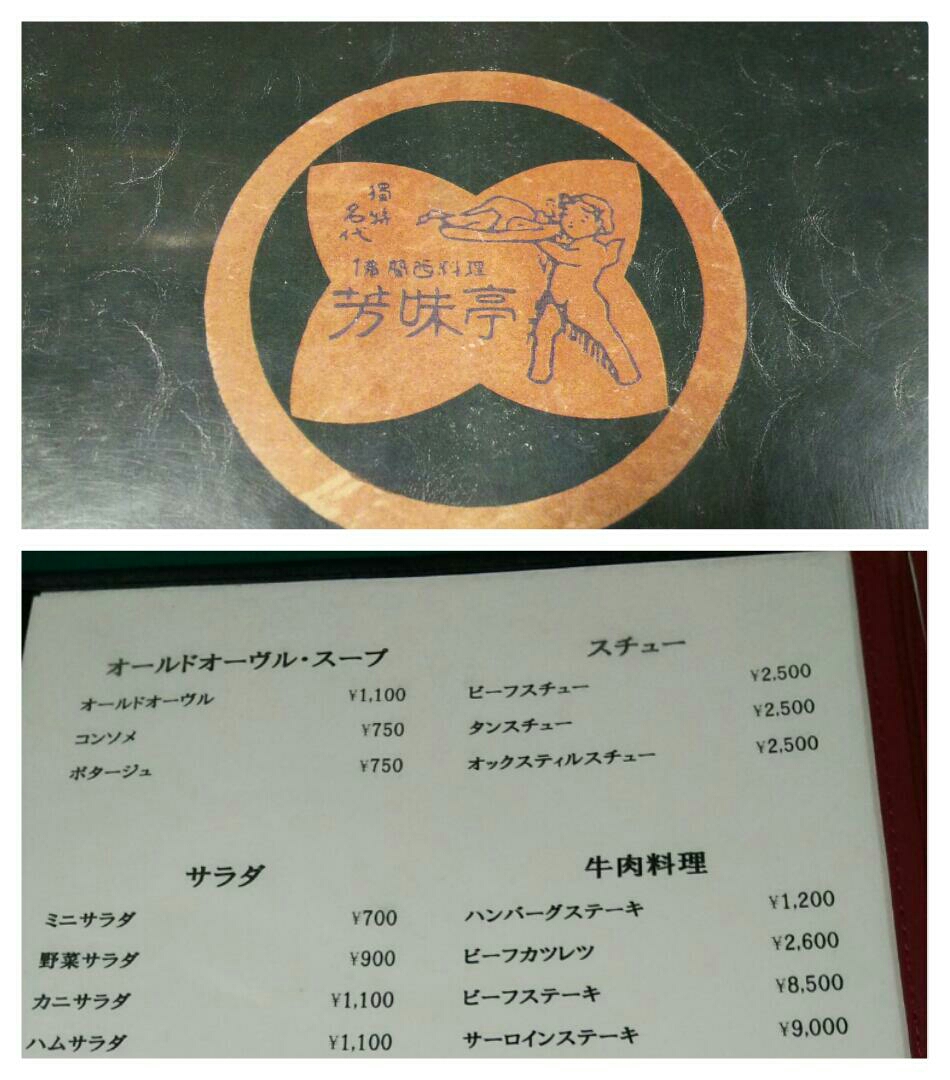 獨特
名代
佛蘭西料理
芳味亭
オールドオーヴル・スープ
オールドオーヴル ¥1,100
コンソメ ¥750
ポタージュ ¥750
スチュー
ビーフスチュー ¥2,500
タンスチュー ¥2,500
オックスティルスチュー ¥2,500
サラダ
ミニサラダ ¥700
野菜サラダ ¥900
カニサラダ ¥1,100
ハムサラダ ¥1,100
牛肉料理
ハンバーグステーキ ¥1,200
ビーフカツレツ ¥2,600
ビーフステーキ ¥8,500
サーロインステーキ ¥9,000